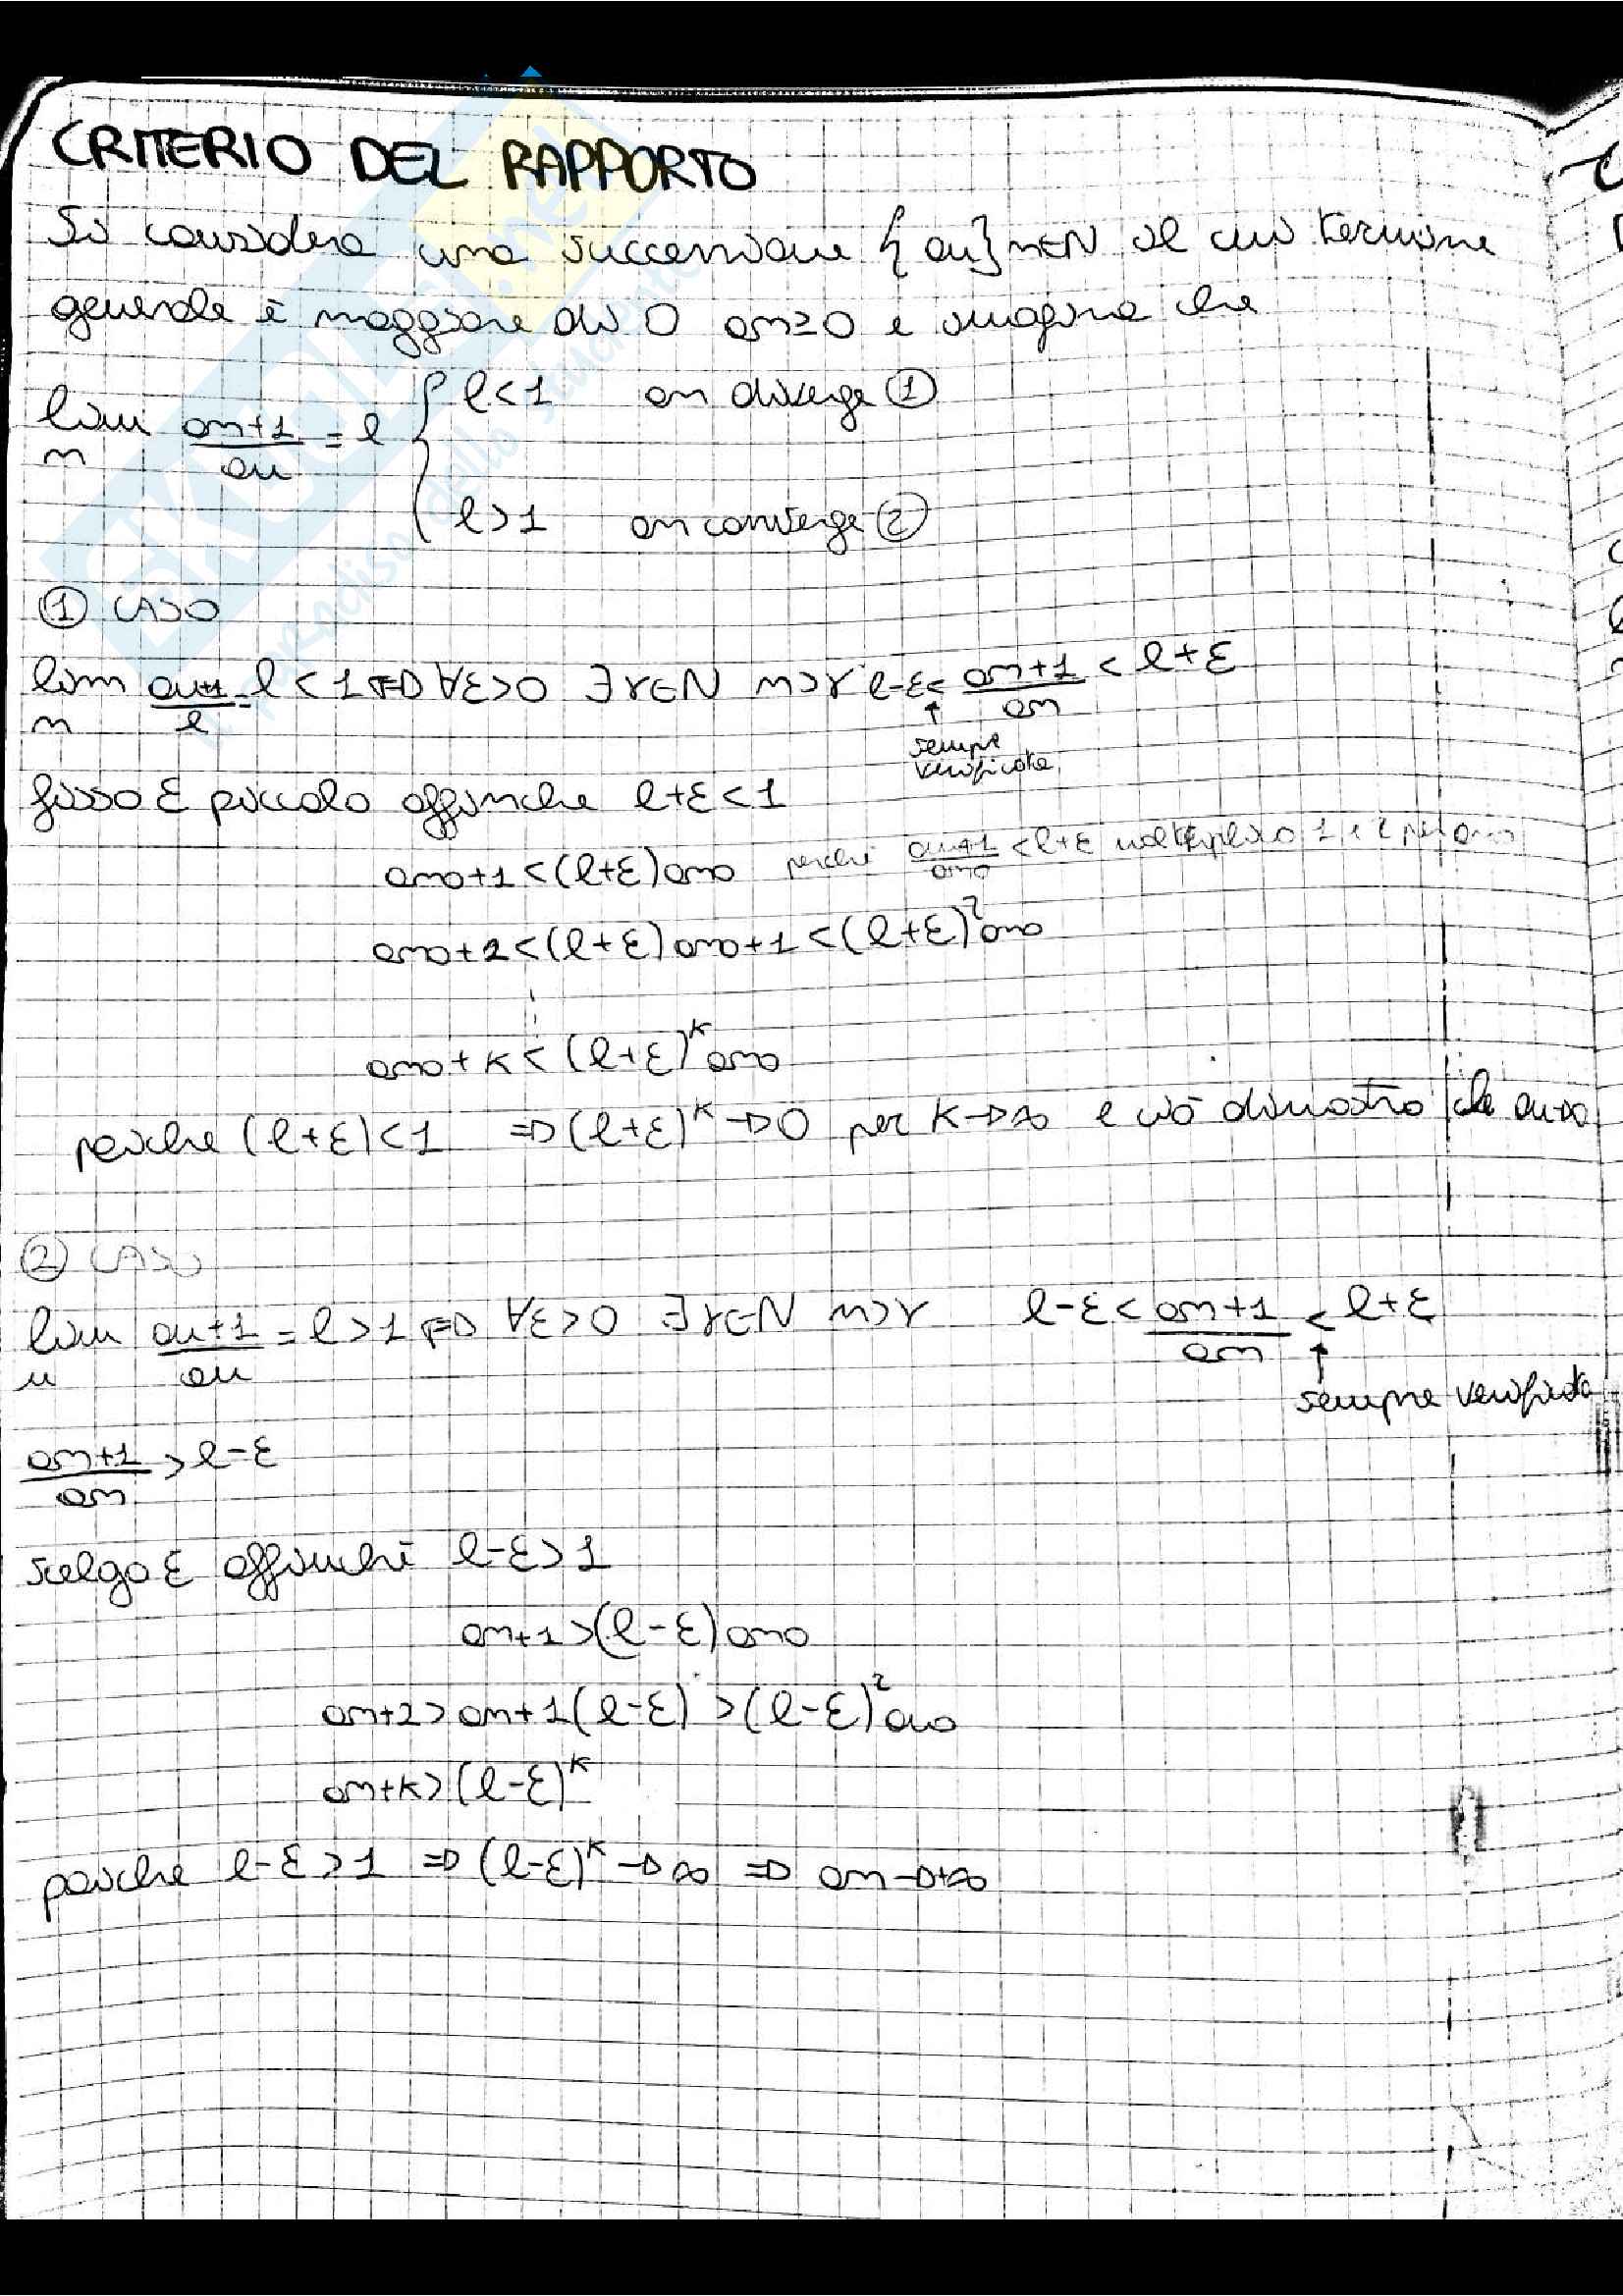 CRITERIO DEL RAPPORTO
Si considera una successione {an}n∈N il cui termine
generale è maggiore di 0 an≥0 e
lim n an+1/an = l { l<1 an diverge ①
l>1 an converge ②
① CASO
lim n an+1/l = l<1 ⇔ ∀ε>0 ∃γ∈N n>γ l-ε< an+1/an < l+ε
↑ sempre
verificata
fisso ε piccolo affinche l+ε<1
ano+1<(l+ε)ano perchè an+1/ano <l+ε moltiplico 1 e 2 per ano
ano+2<(l+ε)ano+1<(l+ε)²ano
ano+k<(l+ε)^k ano
poiche (l+ε)<1 ⇒(l+ε)^k→0 per k→∞ e ciò dimostra che
② CASO
lim n an+1/an = l>1 ⇔ ∀ε>0 ∃γ∈N n>γ l-ε< an+1/an < l+ε
↑
sempre verificata
an+1/an > l-ε
scelgo ε affinchè l-ε>1
an+1>(l-ε)ano
an+2>an+1(l-ε)>(l-ε)²ano
an+k>(l-ε)^k
poiche l-ε>1 ⇒ (l-ε)^k→∞ ⇒ an→+∞